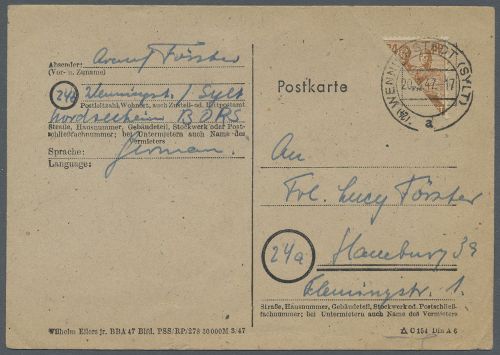 Absender: Förster
(Vor- u. Zuname)
24b Wenningst. / Sylt
Postleitzahl, Wohnort, auch Zustell- od. Leitpostamt
Nordseeheim BDRS
Straße, Hausnummer, Gebäudeteil, Stockwerk oder Post-
schließfachnummer; bei Untermietern auch Name des
Vermieters
Sprache: German.
Language:
Wilhelm Eilers jr. BBA 47 Blfd. PSS/RP/278 50000M 3/47
WENNINGSTEDT (SYLT)
47.-17
a
Postkarte
An
Frl. Lucy Förster
24a Hamburg 39
Flemingstr. 1.
Straße, Hausnummer, Gebäudeteil, Stockwerk od. Postschließ-
fachnummer; bei Untermietern auch Name des Vermieters
C 154 Din A 6